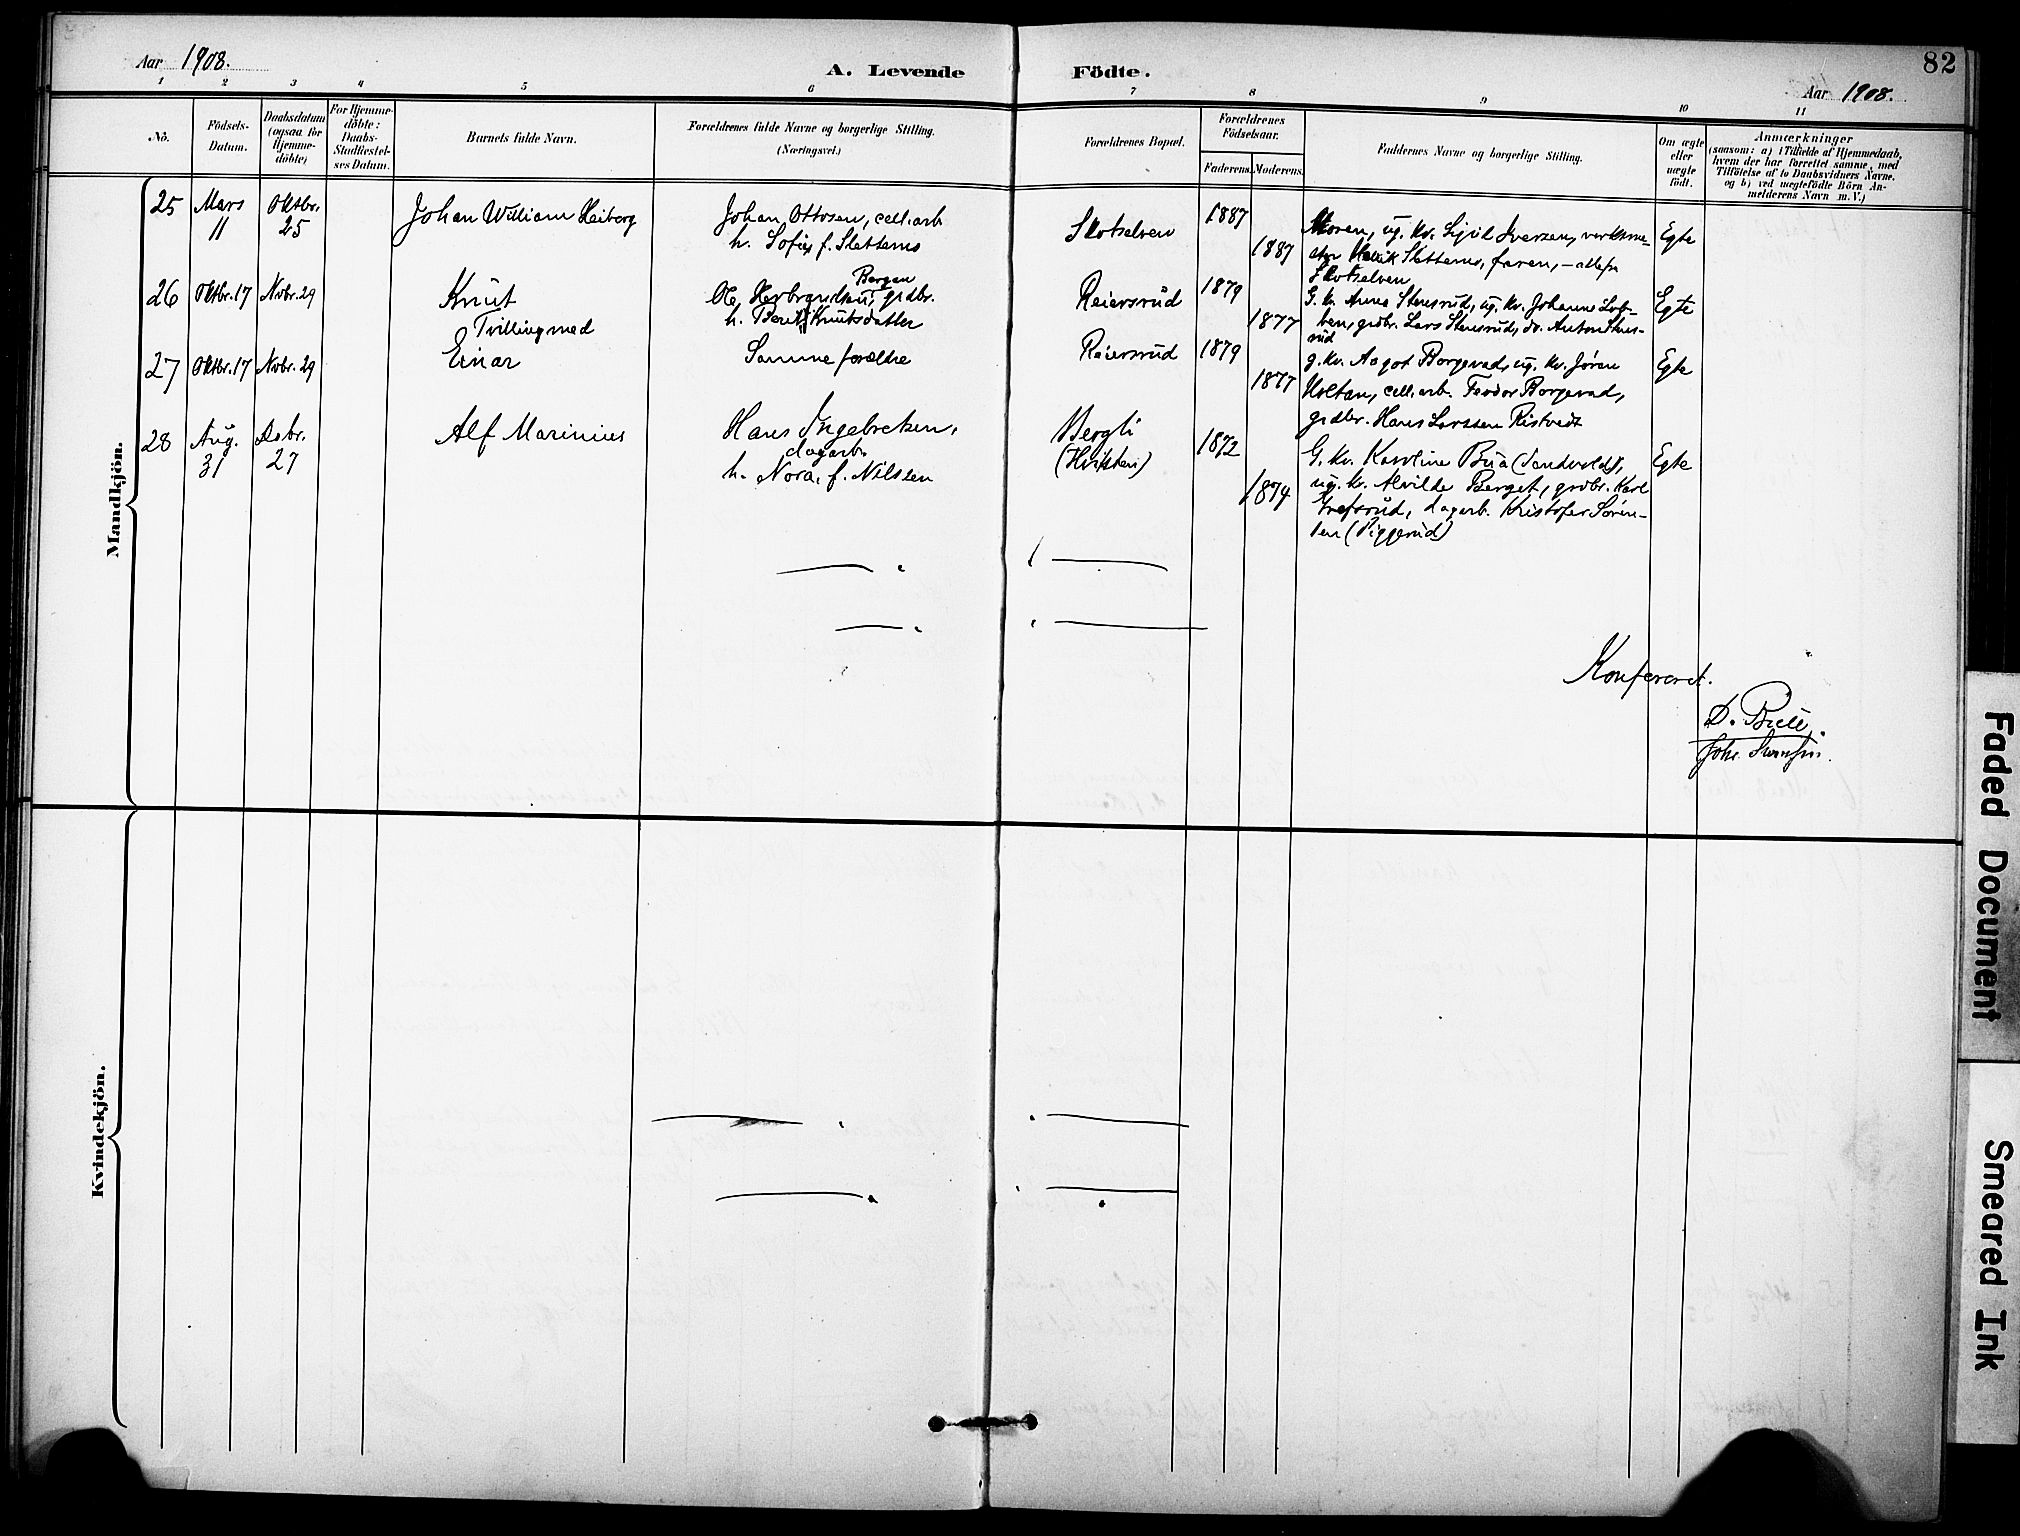 82
Aar 1908.
A. Levende Födte.
Aar 1908.
1 2 3 4 5 6 7 8 9 10 11
No.
Födsels-
Datum.
Daabsdatum
(ogsaa for
Hjemme-
döbte)
For Hjemme-
döbte:
Daabs-
Stadfæstel-
ses Datum.
Barnets fulde Navn.
Forældrenes fulde Navne og borgerlige Stilling.
(Næringsvei.)
Forældrenes Bopæl.
Forældrenes
Födselsaar.
Faderens. Moderens.
Faddernes Navne og borgerlige Stilling.
Om ægte
eller
uægte
födt.
Anmærkninger
(saasom: a) i Tilfælde af Hjemmedaab,
hvem der har forrettet samme, med
Tilföielse af to Daabsvidners Navne.
og b) ved uægtefödte Börn An-
melderens Navn m. V.)
Mandkjön.
25
Mars
11
Oktbr.
25
Johan William Heiberg
Johan Ottosen, cell.arb
h. Sofie, f. Slettenes
Skotselven
1887
1887
Moren, ug. kv. Sigrid Iversen, verksme-
ster Slettenes, faren, – alle fra
Skotselven
Egte
26
Oktbr. 17
Novbr. 29
Knut
Tvilling med
Bergan
Ole Herbrandsen, grdbr.
h. Berit Knutsdatter
Reiersrud
1879
1877
G. kv. Anna Stensrud, ug. kv. Johanne
grdbr. Lars Stensrud, do. Anton Stens-
rud
Egte
27
Oktbr. 17
Novbr. 29
Einar
Samme forældre
Reiersrud
1879
1877
g. kv. Aagot Borgerud, ug. kv. Jøran
Holtan, cell.arb. Teodor Borgerud,
grdbr. Hans Larssen Ristvedt
Egte
28
Aug.
31
Desbr.
27
Alf Marinius
Hans Ingebretsen,
dagarb.
h. Nora, f. Nilssen
Bergli
1872
1874
G. kv. Karoline Bua (Sandvold),
ug. kv. Alvilde Berget, grdbr. Karl
Grefsrud, dagarb. Kristofer Søren-
sen (Piggerud)
Egte
Konfereret.
Kvindekjön.
Faded Document
Smeared Ink